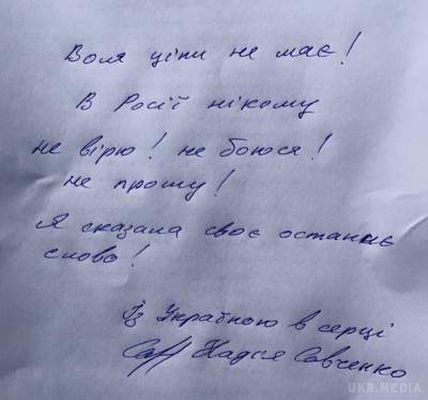 Воля ціни не має!
В Росії нікому
не вірю! не боюся!
не прошу!
Я сказала своє останнє
слово!
Із Україною в серці
Надія Савченко
UKR.MEDIA